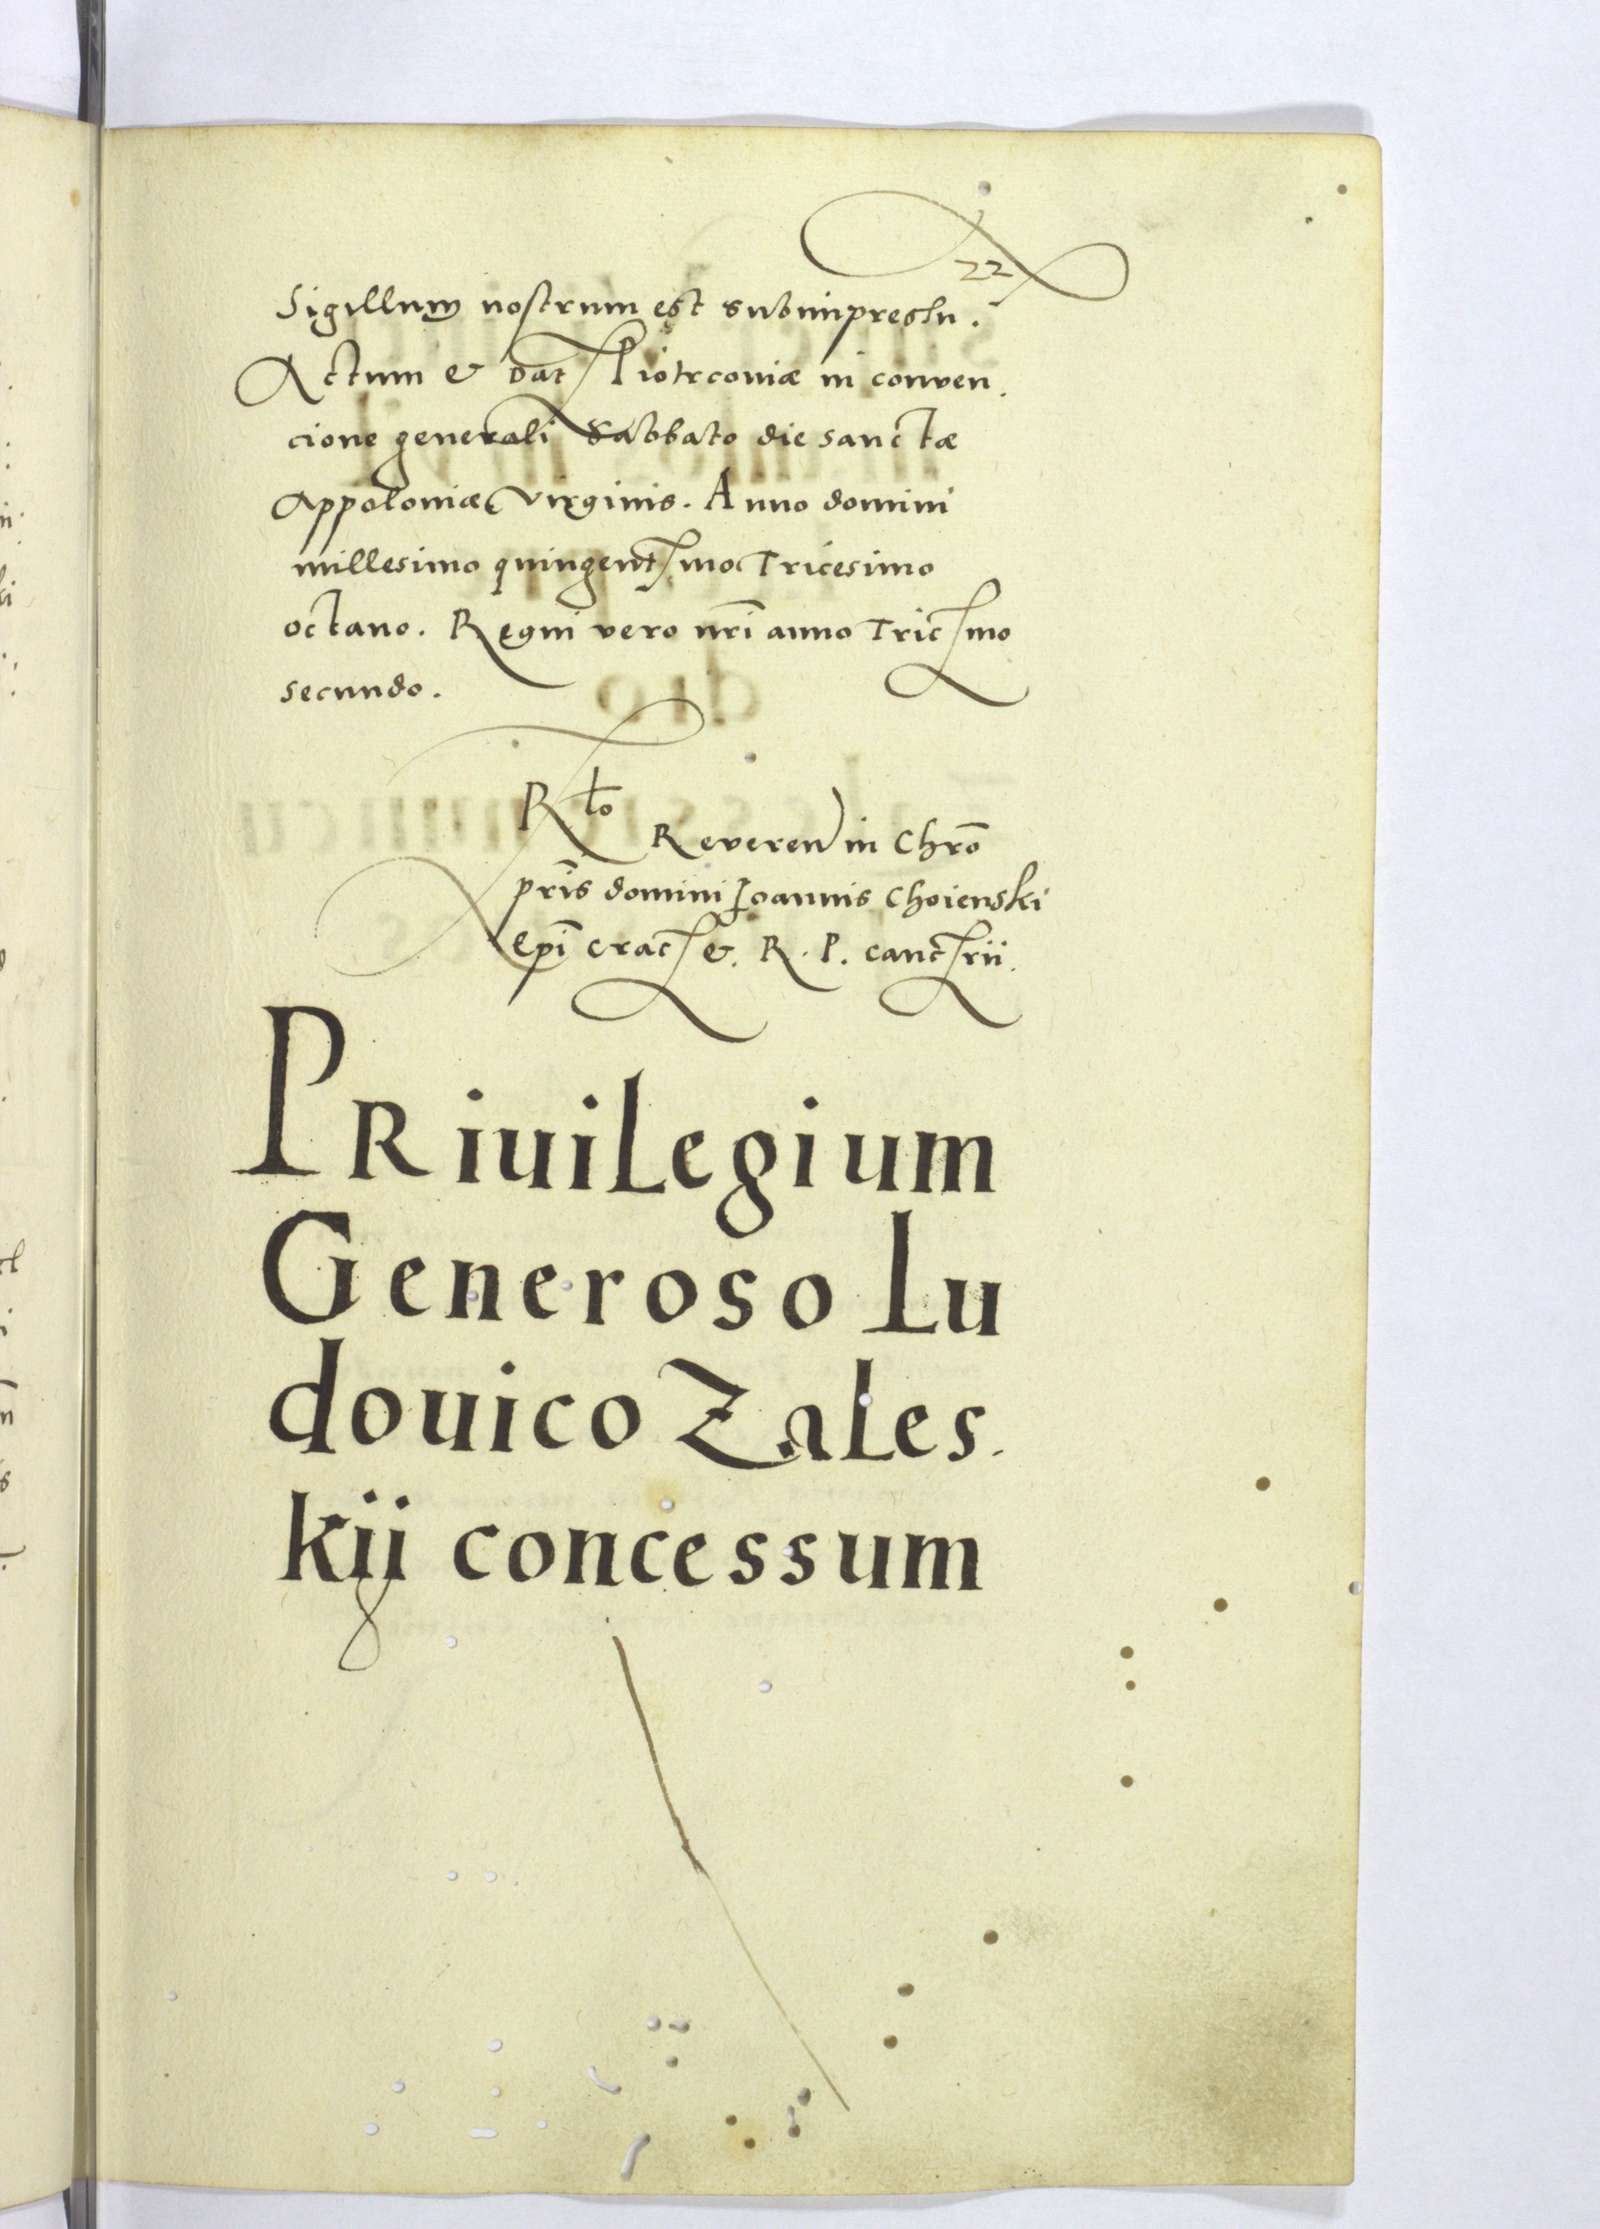 22
Sigillum nostrum est subimpressu.
Actum & Dat Piotrconiæ in conven.
cione generali Sabbato die sanctæ
Appoloniæ Virginis. Anno domini
millesimo quingentsmo Tricesimo
octavo. Regni vero nr̄i anno Tricsmo
secundo.
Rlto
Reveren in Chr̄o
pr̄is domini Joannis Choienski
Ep̄i crac & R. P. Canctrii.
PRiuilegium
Generoso Lu
douico Zales.
kii concessum